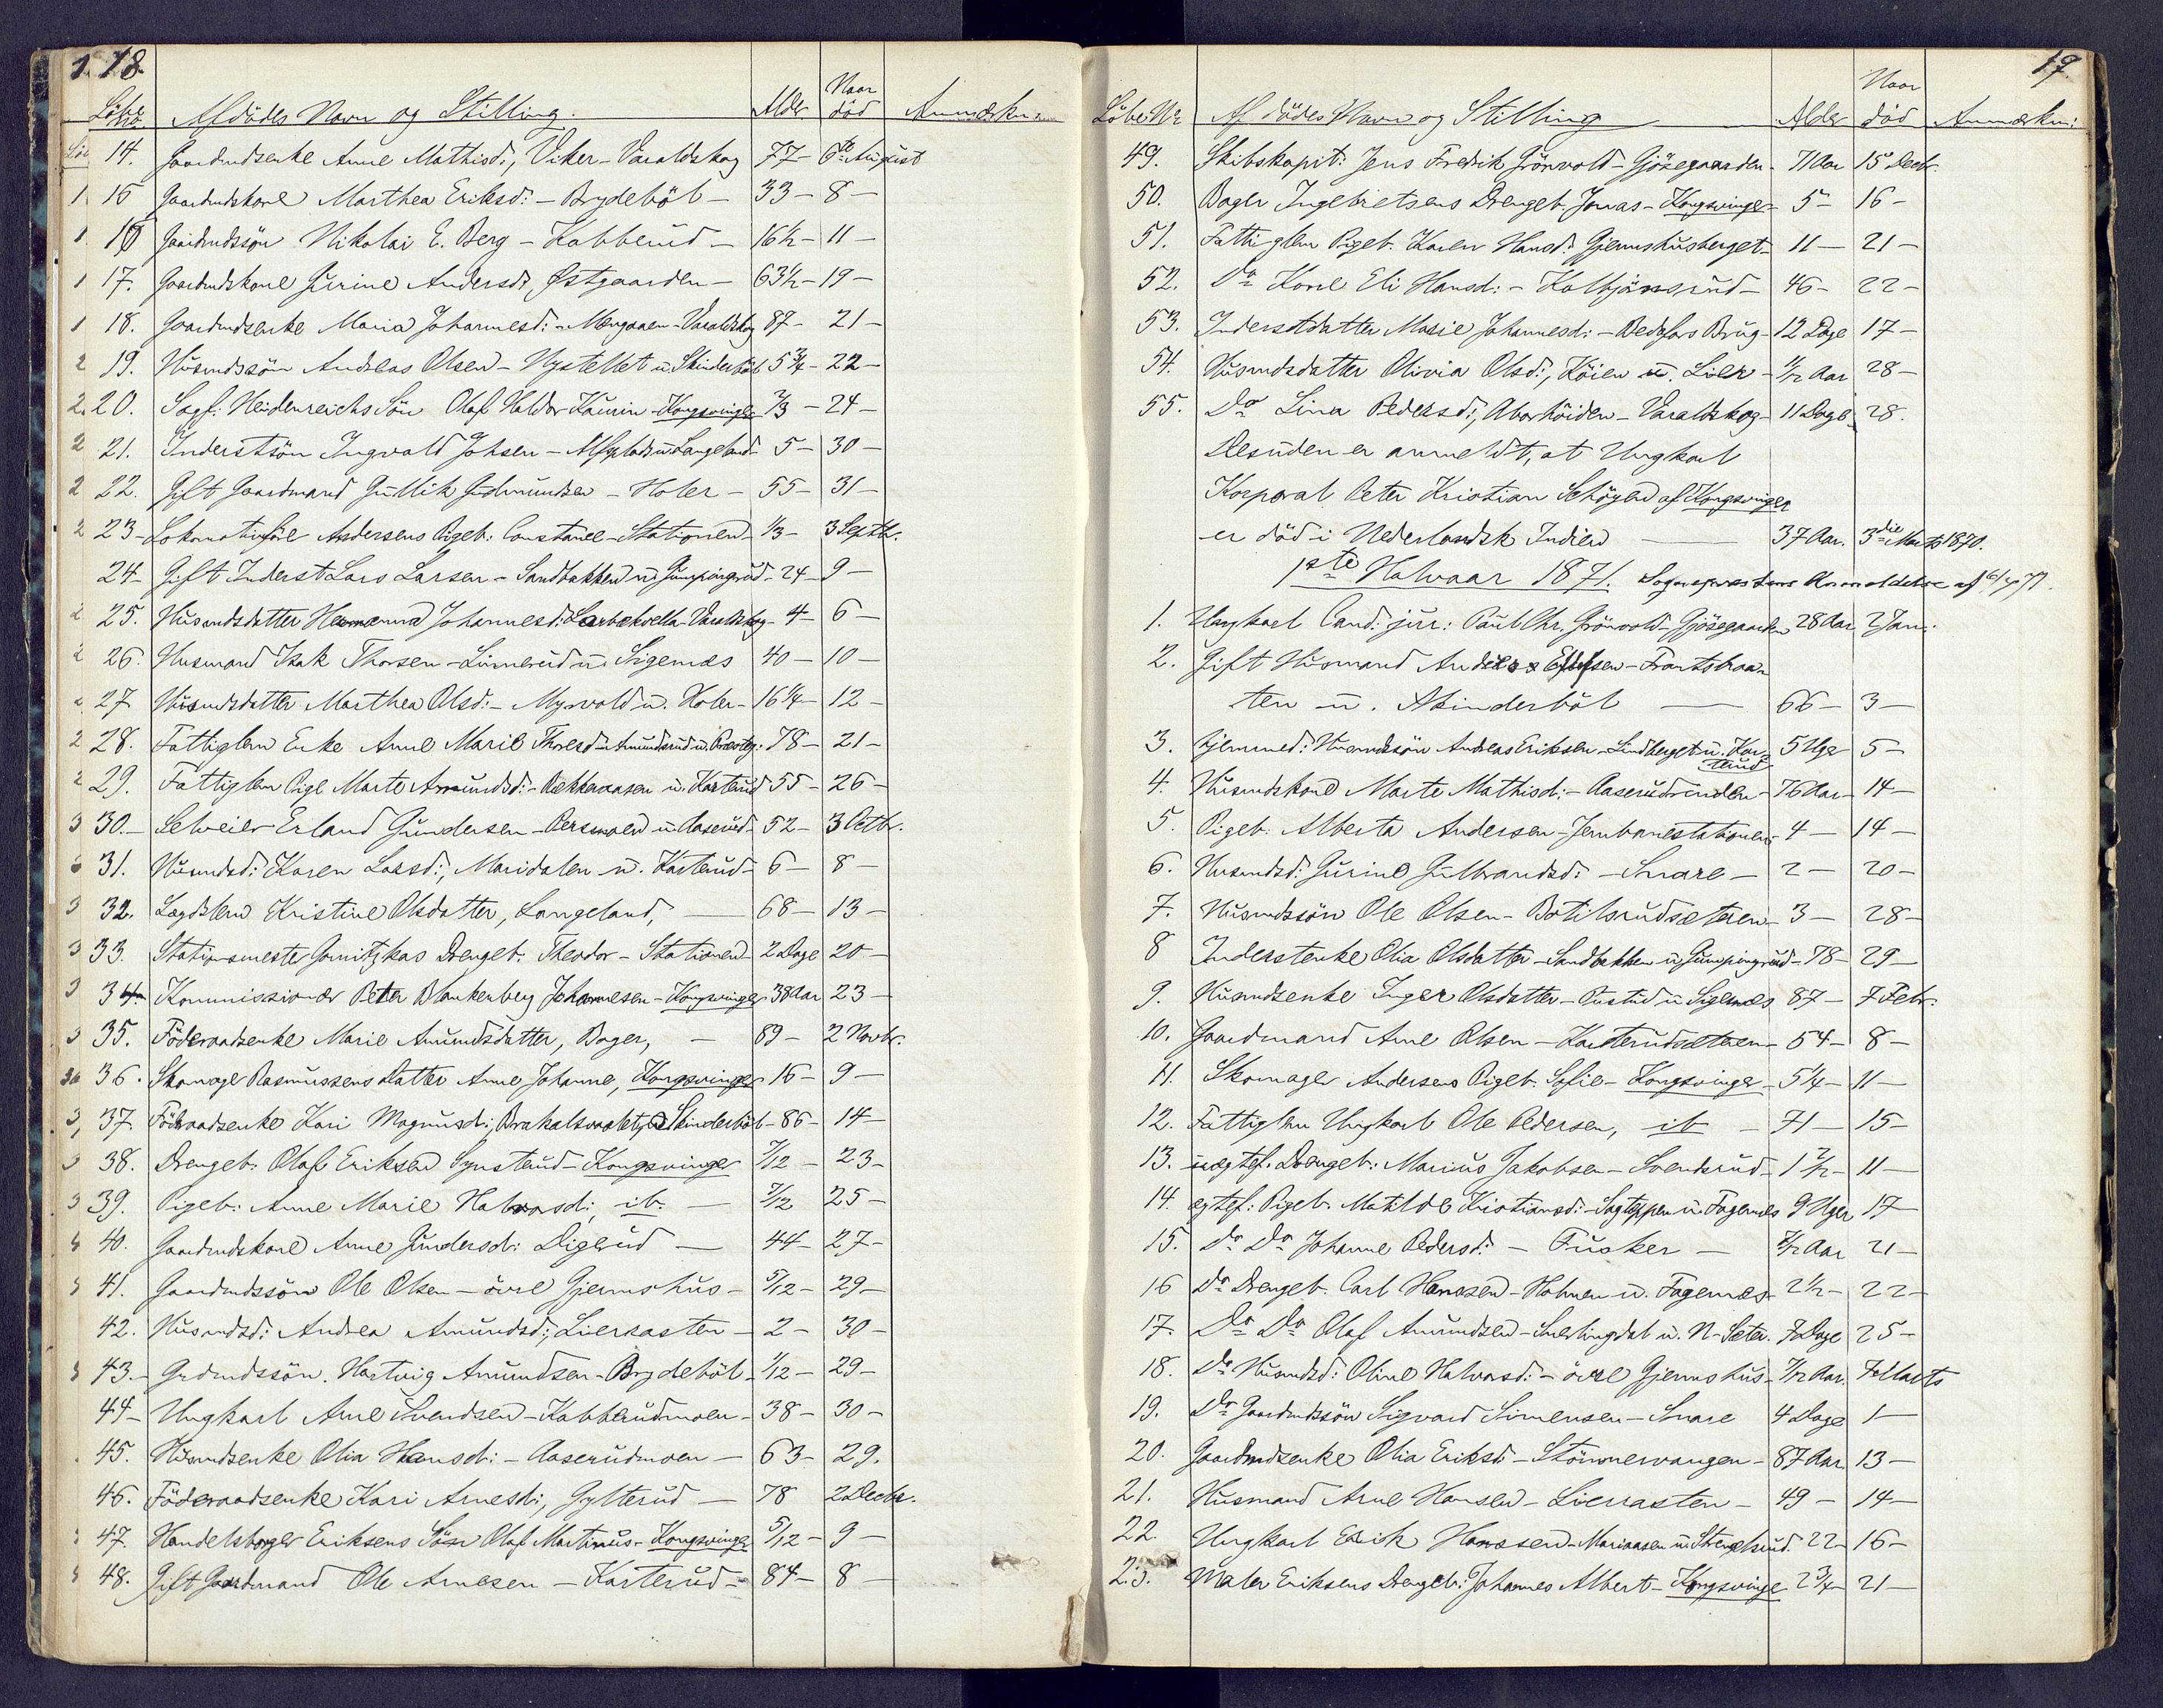 18.
Löbe No. Afdödes Navn og Stilling. Alder Naar död Anmærkn.
14. Gaardmdsenke Anne Mathisd:, Viker - Varaldskog 77 - 6te August
15 Gaardmdskone Marthea Eriksd: - Brydeböl - 33 - 8 -
16 Gaardmdssøn Nikolai E. Berg - Kabberud - 16½ - 11 -
17. Gaardmdskone Gurine Andersd:, Østgaarden - 63½ - 19 -
18. Gaardmdsenke Maria Johannesd: - Mengaaen - Varaldskog 87 - 21 -
19. Husmdssön Andreas Olsen - Nystellet u. Skinderböl 5¾ - 22 -
20. Sagf: Heidenreichs Sön Olaf Haldor Kaurin - Kongsvinger ⅔ - 24 -
21. Inderstsön Ingvald Johsen - Alfspladsen u. Langeland - 5 - 30 -
22. Gift Gaardmand Gullik Gudmundsen - Holer - 55 - 31 -
23 - Lokomotivför Andersens Pigeb: Constance - Stationen - ⅓ - 3 Septbr.
24 - Gift Inderst Lars Larsen - Sandbakken u. Gumpingrud - 24 - 9 -
25. Husmdsdatter Hermanna Johannesd: Larbekvella - Varaldskog - 4 - 6 -
26. Husmand Isak Thorsen - Linnerud u. Sigernæs 40 - 10 -
27 Husmdsdatter Marthea Olsd: - Myrvold u. Holer - 16¼ - 12 -
28. Fattiglem Enke Anne Marie Thoresd - Amundsrud u. Præsteg: 78 - 21 -
29. Fattiglem Pige Marte Amundsd: - Bekkevaasen u. Kasterud 55 - 26 -
30. - Selveier Erland Gundersen - Persmoen u. Aaserud - 52 - 3 Octbr.
31. Husmdsd: Karen Larsd:, Maridalen u. Kasterud - 6 - 8 -
32. Lægdslem Kristine Olsdatter, Langeland, - 68 - 13 -
33. Stationsmester Gomitzkas Drengeb. Theodor - Stationen - 2 Dage 20 -
34. Kommissionær Peter Blankenberg Johannesen - Kongsvinger 38 Aar 23 -
35. Föderaadsenke Marie Amundsdatter, Bager, - 89 - 2 Novbr.
36. Skomager Rasmussens Datter Anne Johanne, Kongsvinger 16 - 9 -
37. Föderaadsenke Kari Magnusd:, Brakalsvastet u. Skinderböl - 86 - 14 -
38. Drengeb: Olaf Eriksen Synstrud - Kongsvinger 7/12 - 23 -
39. Pigeb: Anne Marie Halvorsd:, ib. - 7/12 25 -
40. Gaardmdskone Anne Gundersd: Digerud - 44 - 27 -
41. Gaardmdssön Ole Olsen - övre Gjermshus - 5/12 - 29 -
42. Husmdsd: Andrea Amundsd:, Lierkasten - 2 - 30 -
43. - Grdmdssön. Hartvig Amundsen - Brydeböl - 1/12 - 29 -
44 - Ungkarl Arne Svendsen - Kabberudmoen - 38 - 30 -
45. Husmdsenke Olia Hansd: - Aaserudmoen - 63 - 29.
46. Föderaadsenke Kari Arnesd:, Gylterud - 78 2 Decbr.
47. Handelsborger Eriksens Sön Olaf Martinus - Kongsvinger 5/12 - 9 -
48. Gift Gaardmand Ole Arnesen - Kasterud - 84 - 8 -
19.
Löbe Nr. Afdödes Navn og Stilling Alder Naar död Anmærkn:
49. Skibskapit: Jens Fredrik Grönvold - Gjösegaarden - 71 Aar 15de Decbr.
50. Bager Ingebretsens Drengeb. Jonas - Kongsvinger - 5 - 16 -
51. Fattiglem Pigeb. Karen Hansd: Gjermshusberget - 11 - 21 -
52. Do Kone Eli Hansd: - Kolbjörnsrud - 46 - 22 -
53. Inderstdatter Marie Johannesd: - Bedafors Brug - 12 Dage 17 -
54. Husmdsdatter Olivia Olsd:, Köien u. Lier - 1/12 Aar 28 -
55. Do Lina Pedersd:, Aborhöiden - Varaldskog - 11 Dage 28.
Desuden er anmeldt, at Ungkarl
Korporal Peter Kristian Schöyen af Kongsvinger
er död i Nederlandsk Indien - 37 Aar. 3die Marts 1870.
1ste Halvaar 1871. Sogneprestens Anmeldelse af
1. Ungkarl Cand: jur: Paul Chr. Grönvold - Gjösegaarden 28 Aar 2 Jan:
2. Gift Husmand Anders Elefsen - Frantsbraa
ten u. Skinderböl - 66 - 3 -
3. Hjemmed: Husmdssön Andreas Eriksen - Lindberget u. Kas- 5 Uger 5 -
terud
4. Husmdskone Marte Mathisd: - Aaserudrinden - 76 Aar - 14 -
5. Pigeb. Alberta Andersen - Jernbanestationen - 4 - 14 -
6. Husmdsd: Gurine Gulbrandsd: - Snare - 2 - 20 -
7. Husmdssön Ole Olsen - Botilsrudsæteren - 3 - 28 -
8 Inderstenke Olia Olsdatter - Sandbakken u. Gumpingrud - 78 - 29 -
9. Husmdsenke Inger Olsdatter - Pustud u. Sigernæs 87 - 7 Febr.
10. Gaardmand Arne Olsen - Kasterudsætren - 54 - 8 -
11. Skomager Andersens Pigeb. Sofie - Kongsvinger - 5¼ - 11 -
12. Fattiglem Ungkarl Ole Pedersen, ib - 71 - 15 -
13. uægtef. Drengeb.: Marius Jakobsen - Svenserud - 1½ - 11 -
14. egtef: Pigeb. Matilde Kristiansd: - Sagteppen u. Fagernes 9 Uger 17 -
15. Do Do Johanne Pedersd: - Fusker - ½ Aar 21 -
16 Do Drengeb. Carl Hanssen - Holmen u. Fagernes - 2½ - 22 -
17. Do Do Olaf Amundsen - Snerlingdal u. N. Seter. 7 Dage 25 -
18. Do Husmdsd: Oline Halvorsd: - övre Gjermshus - 7/12 Aar. 7 Marts
19. Do Gaardmdssön Sigvard Simensen - Snare 4 Dage 1 -
20. Gaardmdsenke Olia Eriksd: - Stömnervangen - 87 Aar. 13 -
21. Husmand Arne Hansen - Lierrasten - 49 - 14 -
22. Ungkarl Erik Hanssen - Mariaasen u. Strengelsrud. 22 - 16 -
23. Maler Eriksens Drengeb: Johannes Albert - Kongsvinger 2¾ - 21 -